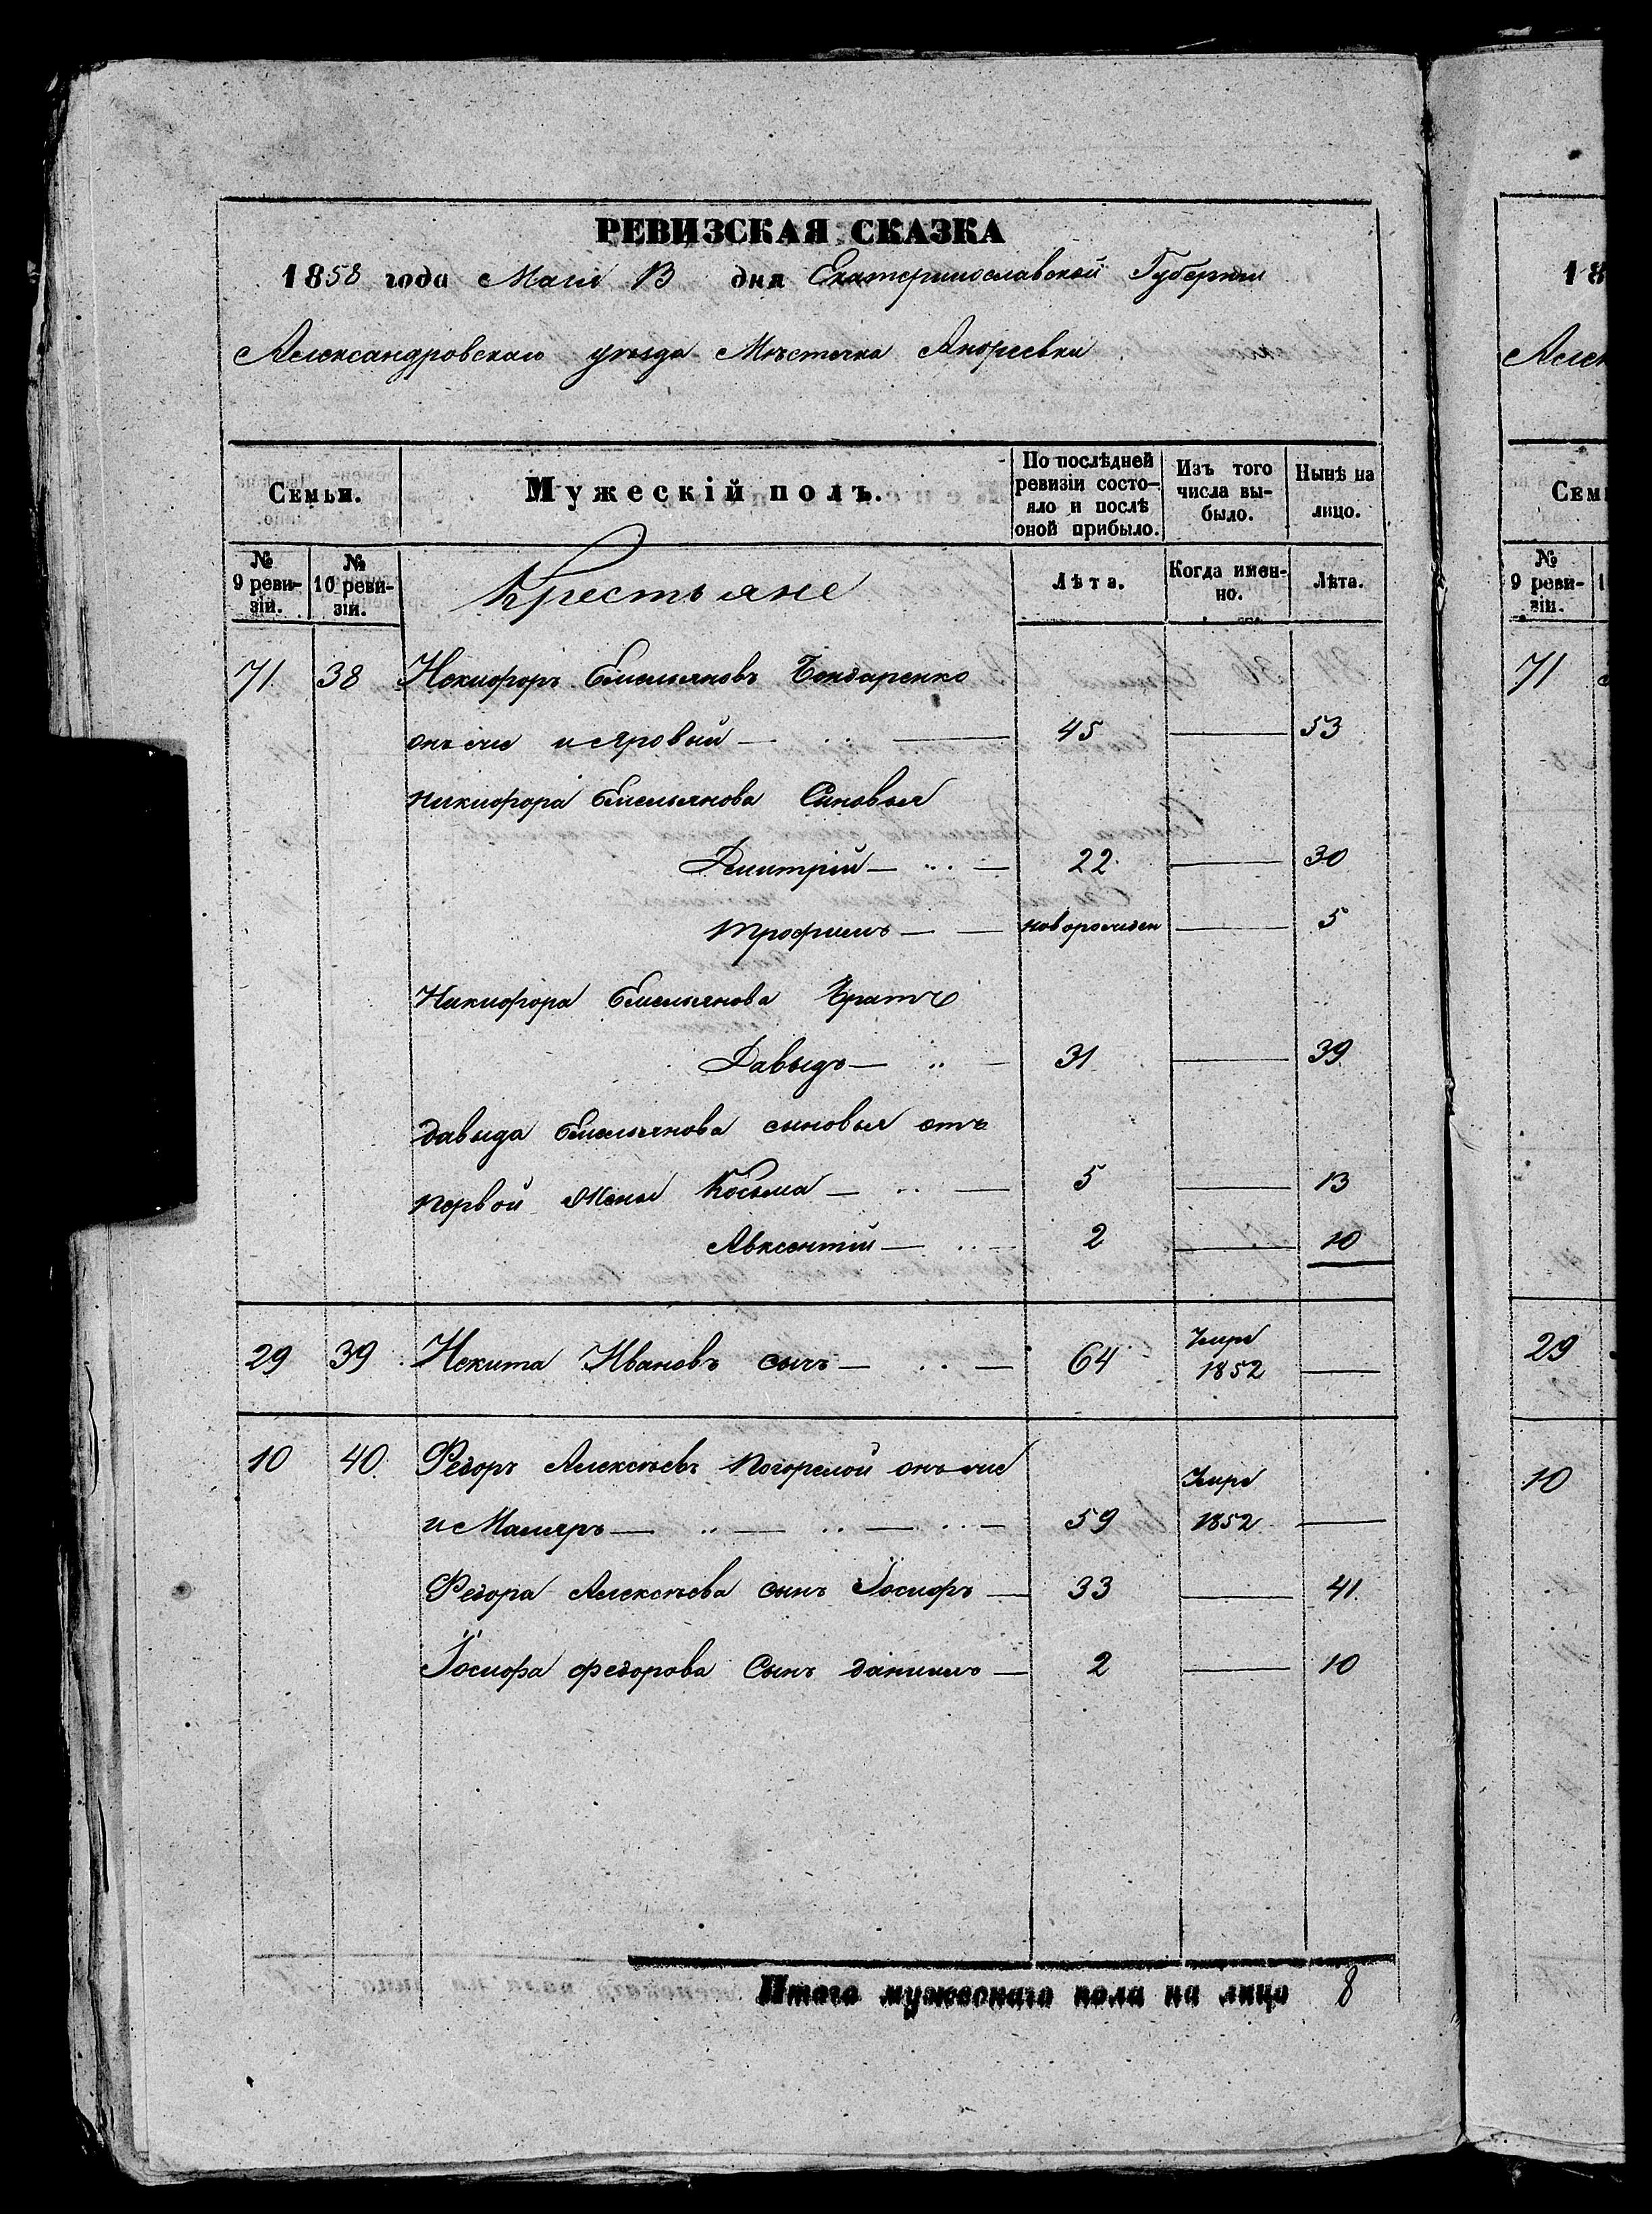 РЕВИЗСКАЯ СКАЗКА
1858 года Маія 13 дня Екатеринославской Губерніи
Александровскаго уѣзда Мѣстечка Андреевки
Семьи. Мужескій полъ. По послѣдней ревизіи состояло и послѣ оной прибыло. Изъ того числа выбыло. Нынѣ на лицо.
№ 9 ревизіи. № 10 ревизіи. Крестьяне Лѣта. Когда именно. Лѣта.
71 38 Некифоръ Емельяновъ Бондаренко
онъ же и Яровый — 45 — 53
Никифора Емельянова Сыновья
Дмитрій — 22 — 30
Трофимъ — новорожден — 5
Никифора Емельянова Братъ
Давыдъ — 31 — 39
Давыда Емельянова сыновья отъ
первой жены Косьма — 5 — 13
Авксентій — 2 — 10
29 39 Некита Ивановъ сычъ — 64 Умре 1852 —
10 40 Федоръ Алексѣевъ Погорелой онъ же
и Маляръ — 59 Умре 1852 —
Федора Алексѣева сынъ Іосифъ — 33 — 41
Іосифа Федорова Сынъ Данило — 2 — 10
Итого мужескаго пола на лицо 8
18
Алек
Семь
№ 9 ревизіи.
71
29
10